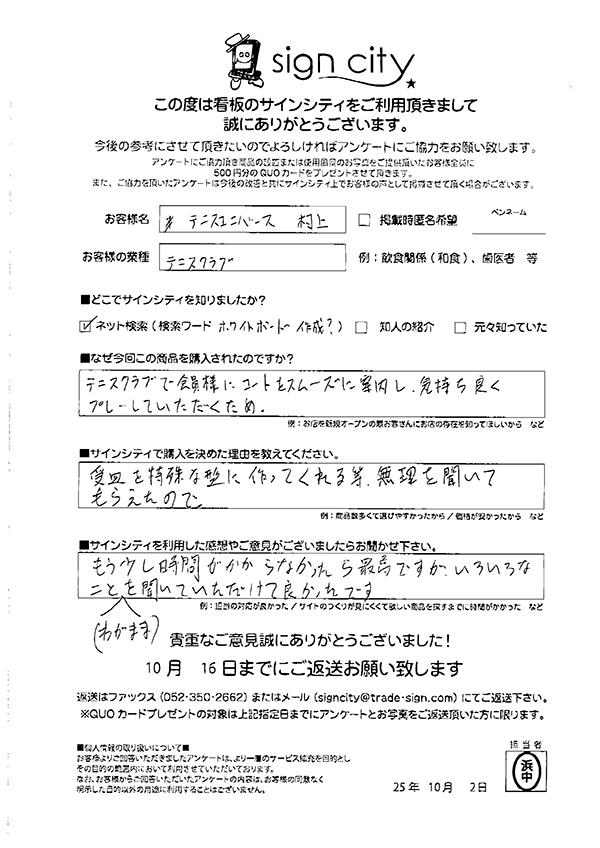 sign city
この度は看板のサインシティをご利用頂きまして
誠にありがとうございます。
今後の参考にさせて頂きたいのでよろしければアンケートにご協力をお願い致します。
アンケートにご協力頂き商品の設置または使用風景のお写真をご提供頂いたお客様全員に
500円分のQUOカードをプレゼントさせて頂きます。
また、ご協力を頂いたアンケートは今後の改善と共にサインシティ上でお客様の声として掲載させて頂く場合がございます。
お客様名 テニスユニバース 村上 □ 掲載時匿名希望 ペンネーム
お客様の業種 テニスクラブ 例：飲食関係（和食）、歯医者 等
■どこでサインシティを知りましたか？
☑ ネット検索（検索ワード ホワイトボード 作成？） □ 知人の紹介 □ 元々知っていた
■なぜ今回この商品を購入されたのですか？
テニスクラブで会員様に、コートをスムーズに案内し、気持ち良く
プレーしていただくため。
例：お店を新規オープンの際お客さんにお店の存在を知ってほしいから など
■サインシティで購入を決めた理由を教えてください。
受皿を特殊な型に作ってくれる等、無理を聞いて
もらえたので
例：商品数多くて選びやすかったから / 価格が安かったから など
■サインシティを利用した感想やご意見がございましたらお聞かせ下さい。
もう少し時間がかからなかったら最高ですが、いろいろな
ことを聞いていただけて良かったです
（わがまま）
例：担当の対応が良かった / サイトのつくりが見にくくて欲しい商品を探すまでに時間がかかった など
貴重なご意見誠にありがとうございました！
10月 16日までにご返送お願い致します
返送はファックス（052-350-2662）またはメール（signcity@trade-sign.com）にてご返送下さい。
※QUOカードプレゼントの対象は上記指定日までにアンケートとお写真をご返送頂いた方に限ります。
■個人情報の取り扱いについて■
お客様よりご回答いただきましたアンケートは、より一層のサービス拡充を目的とし
その目的の範囲内において利用させていただいております。
なお、お客様からご回答いただいたアンケートの内容は、お客様の同意なく
明示した目的以外の用途に利用することはございません。
25年 10月 2日
担当者
浜中